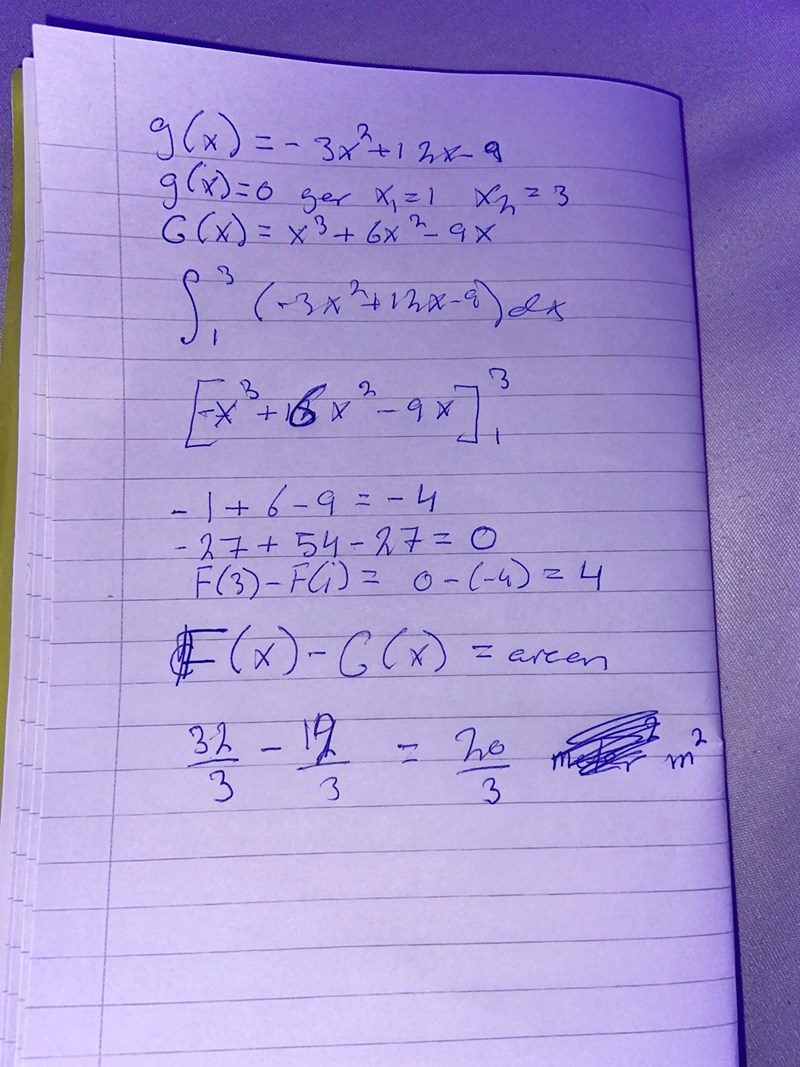 g(x) = - 3x²+12x-9
g(x)=0 ger x₁=1 x₂=3
G(x) = x³+6x²-9x
∫₁³ (-3x²+12x-9)dx
[-x³+6x²-9x]₁³
-1+6-9=-4
-27+54-27=0
F(3)-F(1)= 0-(-4)=4
F(x)-G(x) = arean
32/3 - 12/3 = 20/3 m²